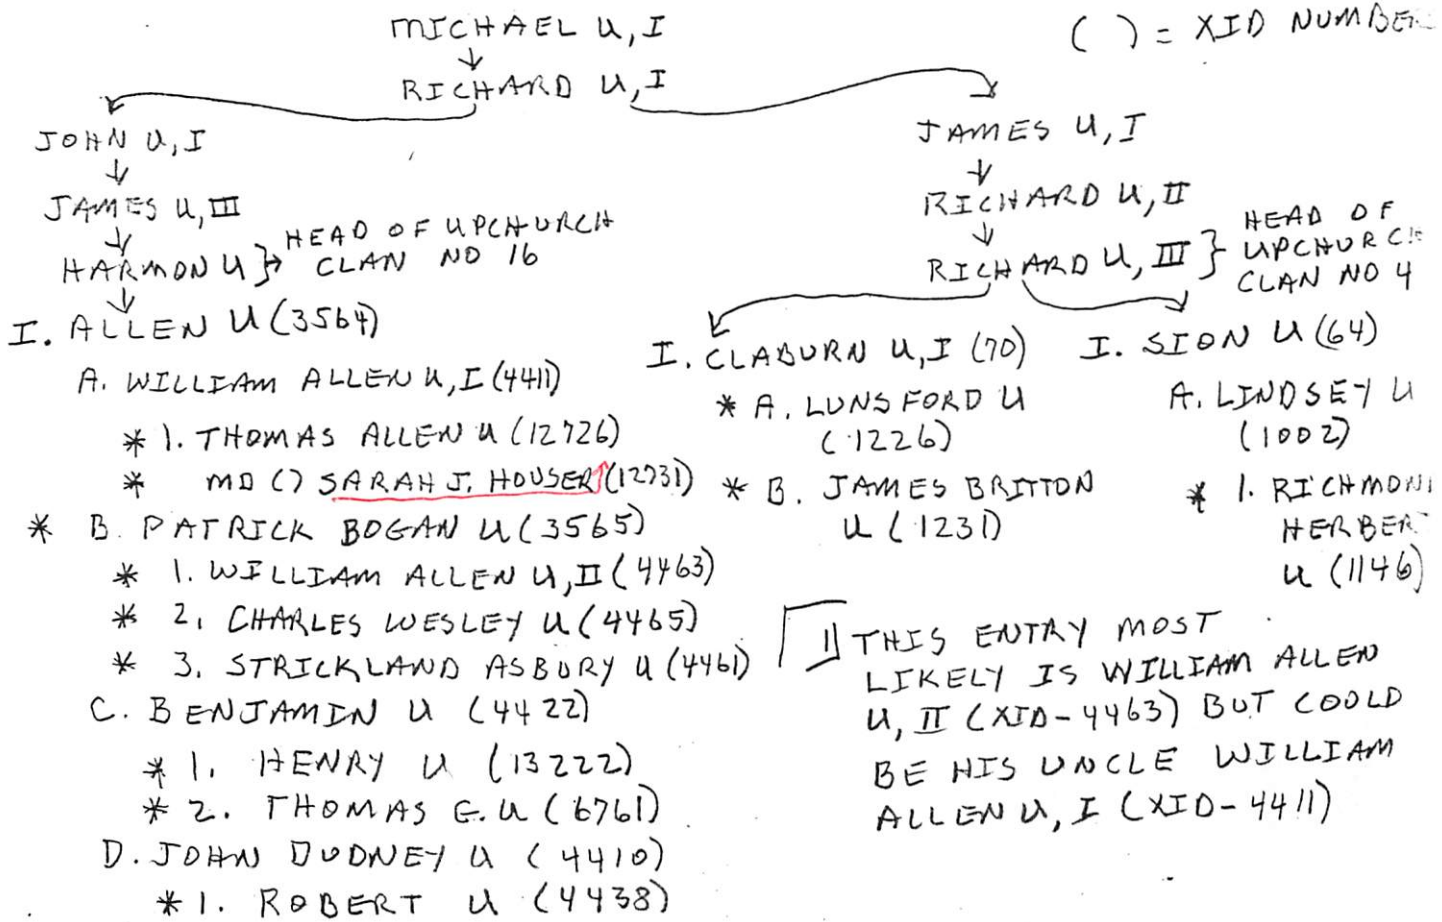 MICHAEL U, I
( ) = XID NUMBER
RICHARD U, I
JOHN U, I
JAMES U, III
HARMON U } HEAD OF UPCHURCH
CLAN NO 16
I. ALLEN U (3564)
A. WILLIAM ALLEN U, I (4411)
* 1. THOMAS ALLEN U (12726)
* MD () SARAH J. HOUSER (12731)
* B. PATRICK BOGAN U (3565)
* 1. WILLIAM ALLEN U, II (4463)
* 2. CHARLES WESLEY U (4465)
* 3. STRICKLAND ASBURY U (4461)
C. BENJAMIN U (4422)
* 1. HENRY U (13222)
* 2. THOMAS G. U (6761)
D. JOHN DUDNEY U (4410)
* 1. ROBERT U (4438)
JAMES U, I
RICHARD U, II
RICHARD U, III } HEAD OF
UPCHURCH
CLAN NO 4
I. CLABURN U, I (70)
* A. LUNSFORD U
(1226)
* B. JAMES BRITTON
U (1231)
I. SION U (64)
A. LINDSEY U
(1002)
* 1. RICHMOND
HERBERT
U (1146)
1 THIS ENTRY MOST
LIKELY IS WILLIAM ALLEN
U, II (XID-4463) BUT COULD
BE HIS UNCLE WILLIAM
ALLEN U, I (XID-4411)